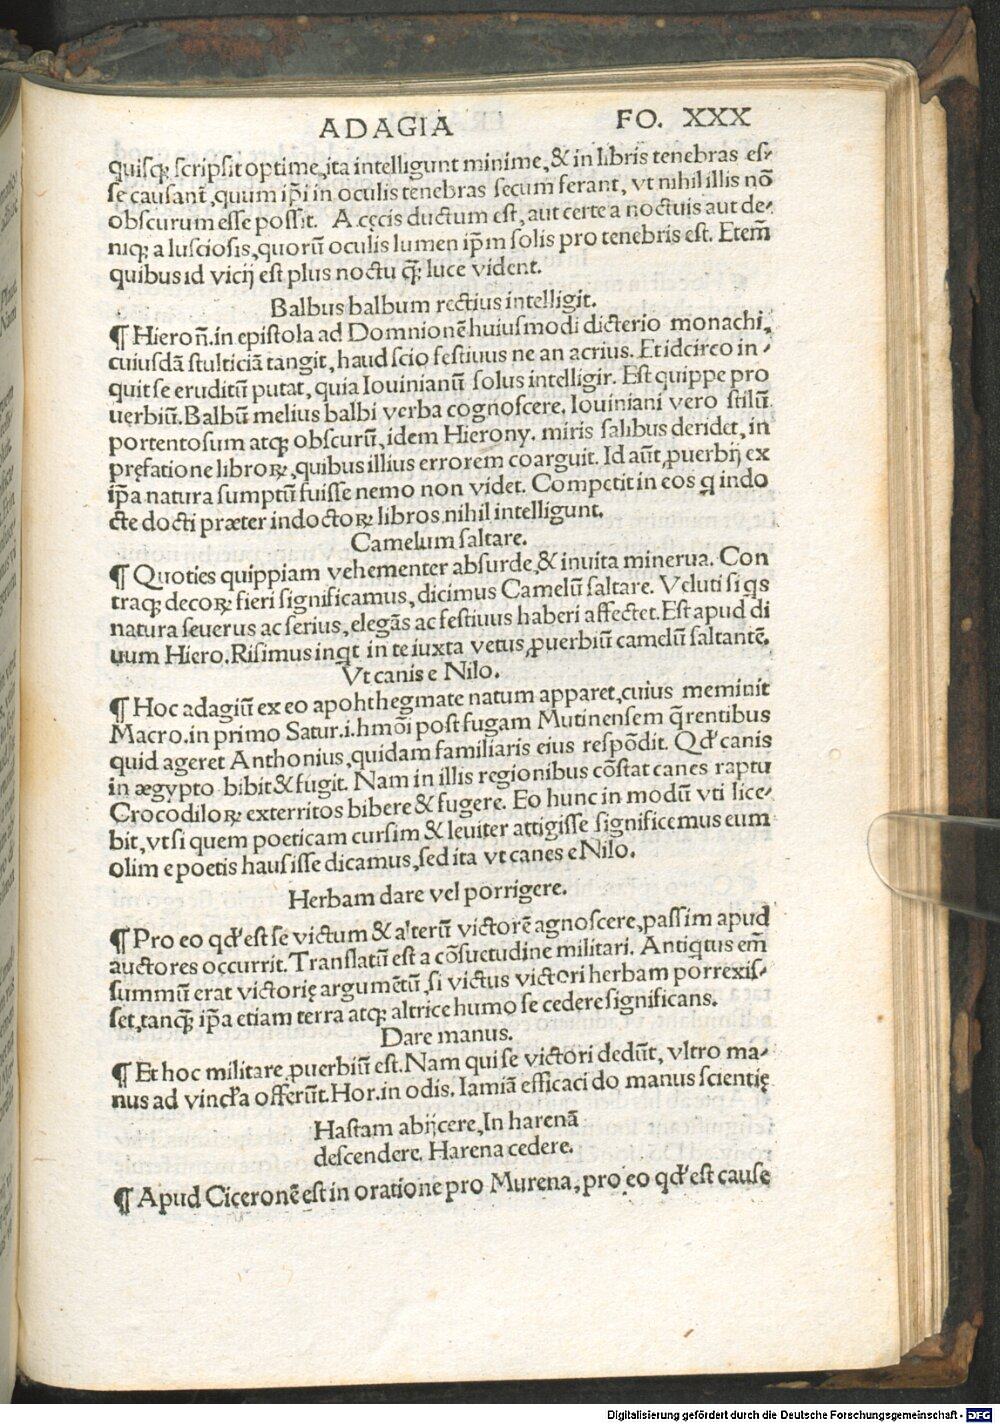 ADAGIA FO. XXX
quisqꝫ scripsit optime, ita intelligunt minime, & in libris tenebras es⸗
se causant̃, quum ip̃i in oculis tenebras secum ferant, vt nihil illis nõ
obscurum esse possit. A cęcis ductum est, aut certe a noctuis aut de⸗
niqꝫ a lusciosis, quorũ oculis lumen ip̃m solis pro tenebris est. Etem̃
quibus id vicij est plus noctu q̃ꝫ luce vident.
Balbus balbum rectius intelligit.
¶ Hieron̄. in epistola ad Domnionẽ huiusmodi dicterio monachi,
cuiusdã stulticiã tangit, haud scio festiuus ne an acrius. Et idcirco in⸗
quit se eruditũ putat, quia Iouinianũ solus intelligir. Est quippe pro
uerbiũ. Balbũ melius balbi verba cognoscere. Iouiniani vero stilũ
portentosum atqꝫ obscurũ, idem Hierony. miris salibus deridet, in
pręfatione libroꝝ, quibus illius errorem coarguit. Id aũt ꝓuerbij ex
ip̃a natura sumptũ fuisse nemo non videt. Competit in eos q indo
cte docti præter indoctoꝝ libros nihil intelligunt.
Camelum saltare.
¶ Quoties quippiam vehementer absurde, & inuita minerua. Con
traqꝫ decoꝝ fieri significamus, dicimus Camelũ saltare. Veluti si qs
natura seuerus ac serius, elegãs ac festiuus haberi affectet. Est apud di
uum Hiero. Risimus inqt in te iuxta vetus ꝓuerbiũ camelũ saltantẽ.
Vt canis e Nilo.
¶ Hoc adagiũ ex eo apohthegmate natum apparet, cuius meminit
Macro. in primo Satur. i. hmõi post fugam Mutinensem q̃rentibus
quid ageret Anthonius, quidam familiaris eius respõdit. Qd' canis
in ægypto bibit & fugit. Nam in illis regionibus cõstat canes raptu
Crocodiloꝝ exterritos bibere & fugere. Eo hunc in modũ vti lice⸗
bit, vt si quem poeticam cursim & leuiter attigisse significemus eum
olim e poetis hausisse dicamus, sed ita vt canes e Nilo.
Herbam dare vel porrigere.
¶ Pro eo qd' est se victum & alterũ victorẽ agnoscere, passim apud
auctores occurrit. Translatũ est a cõsuetudine militari. Antiqtus em̃
summũ erat victorię argumẽtũ, si victus victori herbam porrexis⸗
set, tanq̃ꝫ ip̃a etiam terra atqꝫ altrice humo se cedere significans.
Dare manus.
¶ Et hoc militare ꝓuerbiũ est. Nam qui se victori dedũt, vltro ma⸗
nus ad vincl'a offerũt. Hor. in odis. Iamiã efficaci do manus scientię
Hastam abijcere, In harenã
descendere. Harena cedere.
¶ Apud Ciceronẽ est in oratione pro Murena, pro eo qd' est causę
Digitalisierung gefördert durch die Deutsche Forschungsgemeinschaft - DFG